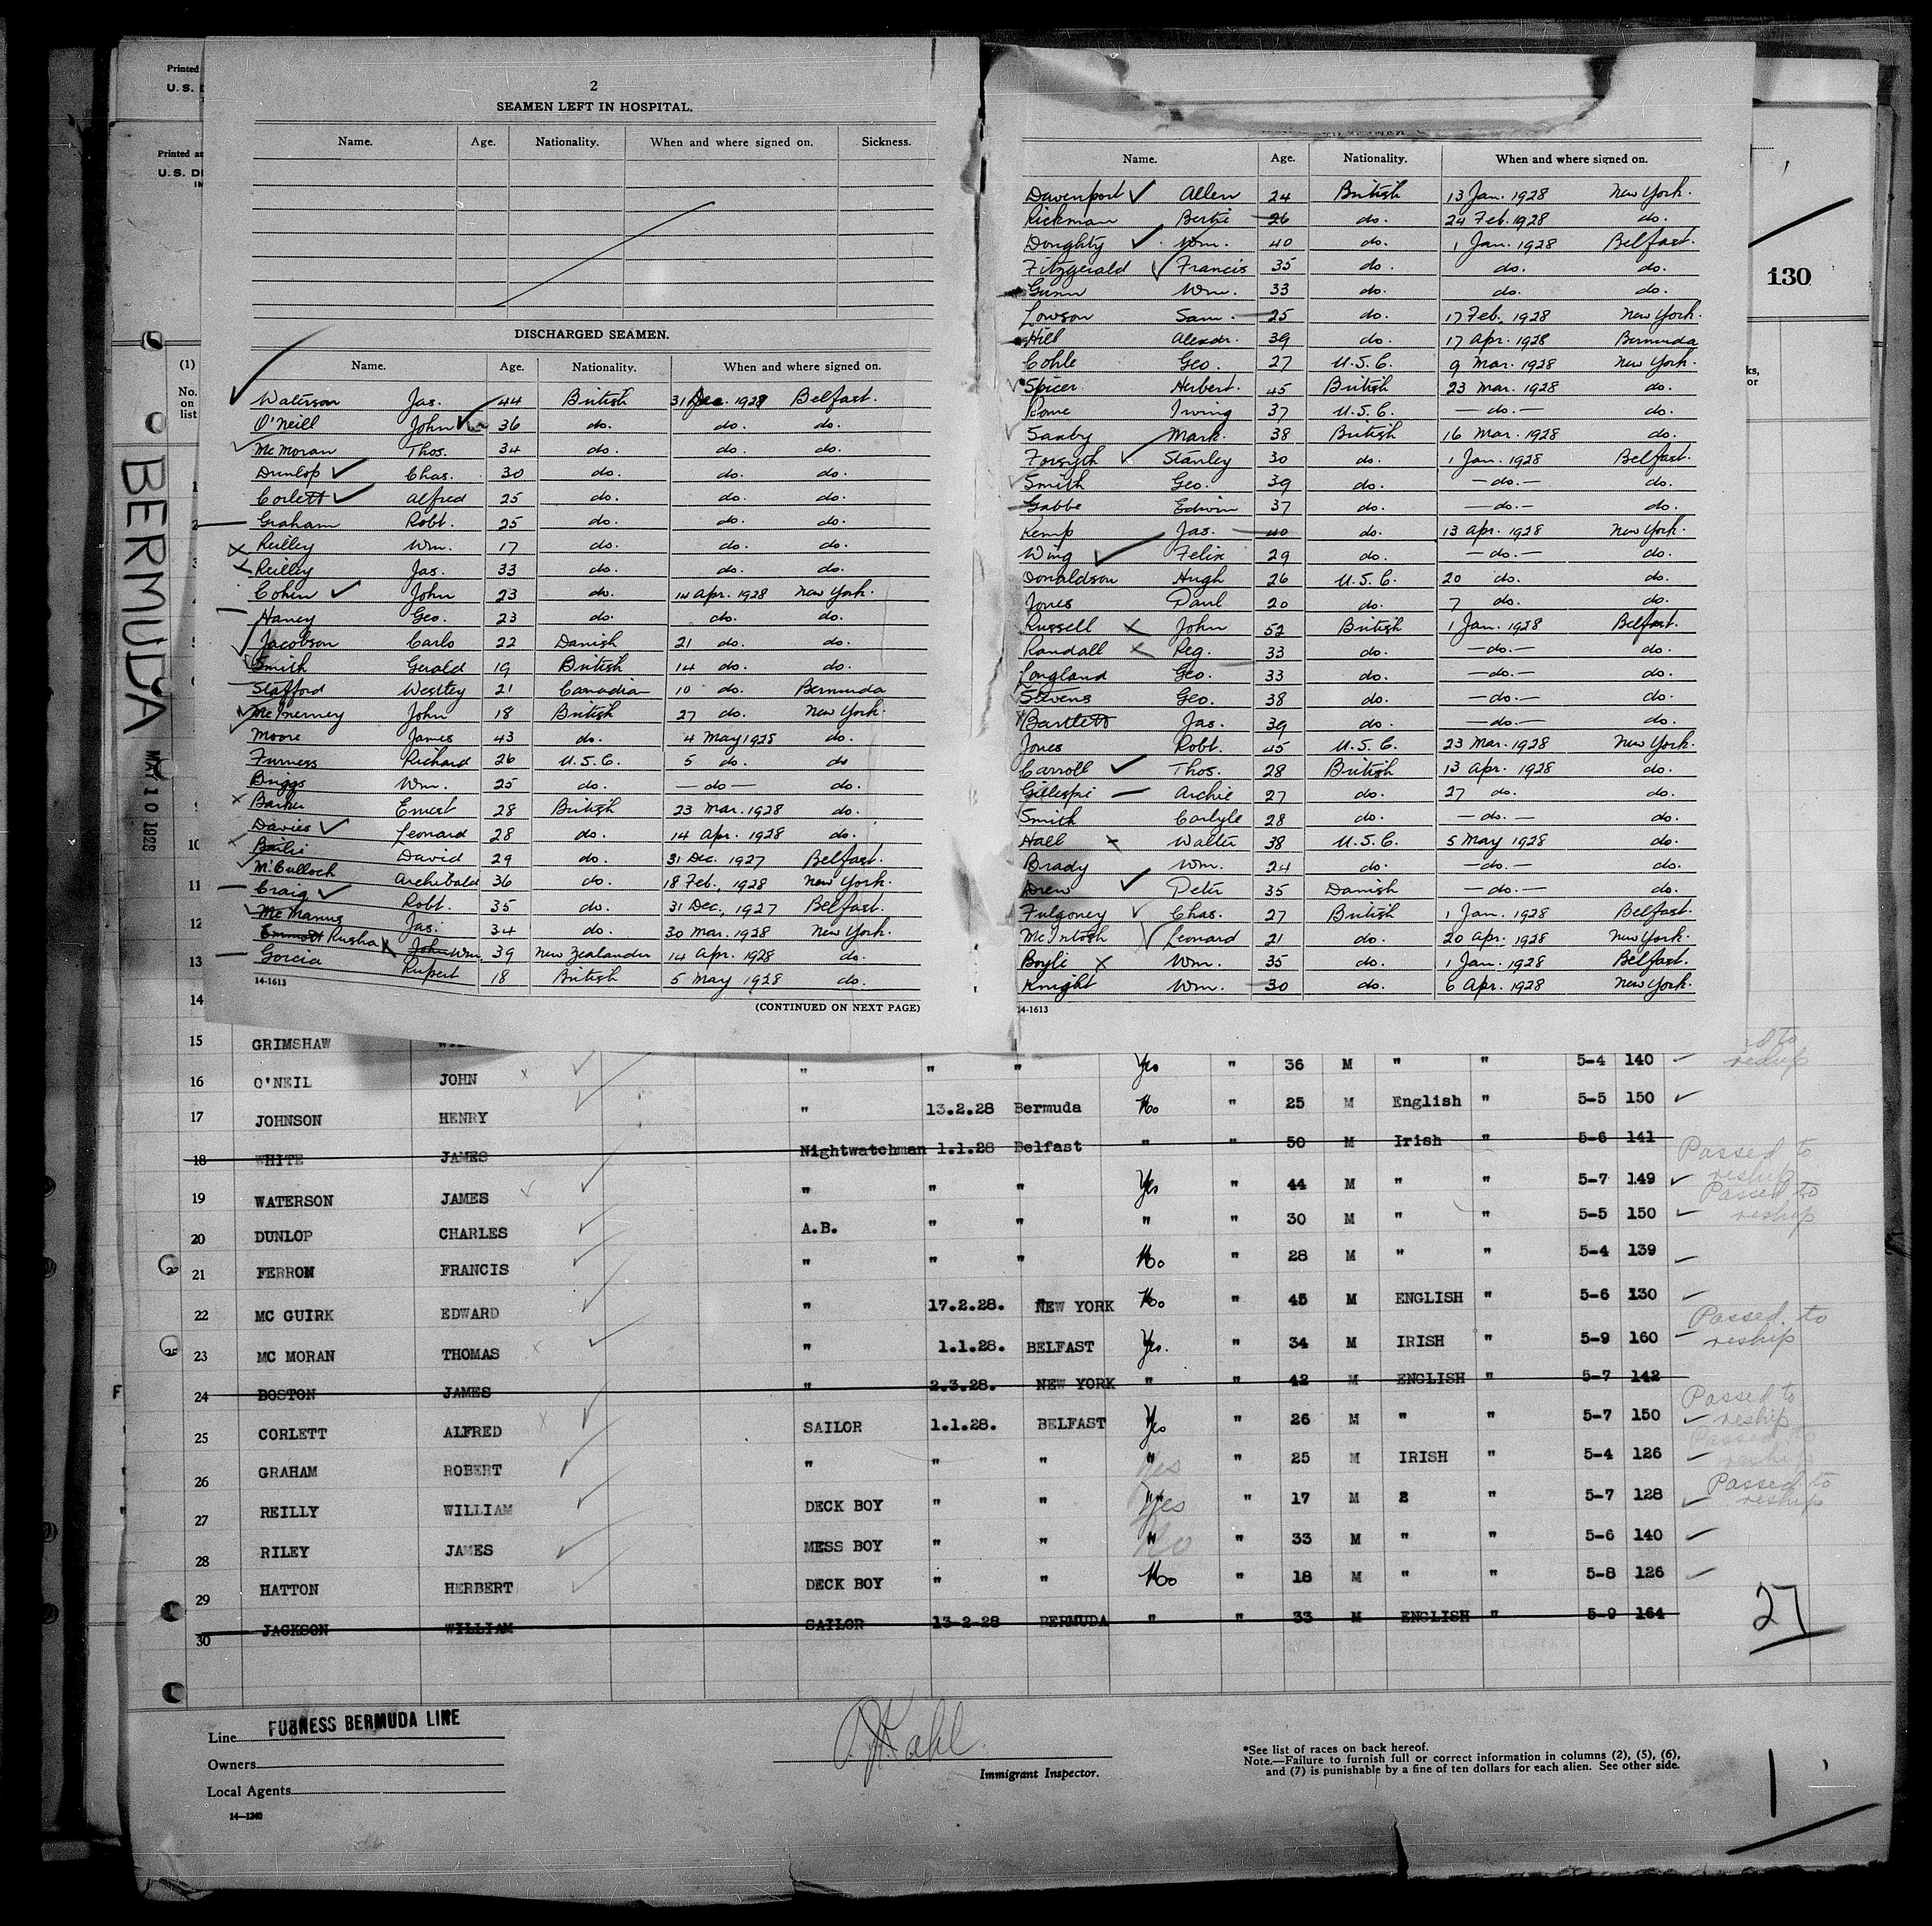 Printed
U. S. D
Printed a
U. S. DE
IM
(1)
No.
on
list
BERMUDA
MAY 10 1928
2
SEAMEN LEFT IN HOSPITAL.
Name. Age. Nationality. When and where signed on. Sickness.
DISCHARGED SEAMEN.
Name. Age. Nationality. When and where signed on.
Waterson Jas. 44 British 31 Dec. 1928 Belfast.
O'Neill John 36 do. do. do.
McMoran Thos. 34 do. do. do.
Dunlop Chas. 30 do. do. do.
Corlett Alfred 25 do. do. do.
Graham Robt. 25 do. do. do.
Reilley Wm. 17 do. do. do.
Reilley Jas. 33 do. do. do.
Cohen John 23 do. 14 Apr. 1928 New York.
Haney Geo. 23 do. do. do.
Jacobson Carlo 22 Danish 21 do. do.
Smith Gerald 19 British 14 do. do.
Stafford Westley 21 Canadian 10 do. Bermuda
McInerney John 18 British 27 do. New York.
Moore James 43 do. 4 May 1928 do.
Furness Richard 26 U.S.C. 5 do. do
Briggs Wm. 25 do. — do — do.
Barker Ernest 28 British 23 Mar. 1928 do.
Davies Leonard 28 do. 14 Apr. 1928 do.
Bailie David 29 do. 31 Dec. 1927 Belfast.
McCulloch Archibald 36 do. 18 Feb., 1928 New York.
Craig Robt. 35 do. 31 Dec., 1927 Belfast.
McManus Jas. 34 do. 30 Mar. 1928 New York.
Emmott Rusha John Wm. 39 New Zealander 14 Apr. 1928 do.
Gorcia Rupert 18 British 5 May 1928 do.
14-1613
(CONTINUED ON NEXT PAGE)
Name. Age. Nationality. When and where signed on.
Davenport Allen 24 British 13 Jan. 1928 New York.
Rickman Bertie 26 do. 24 Feb. 1928 do.
Doughty Wm. 40 do. 1 Jan. 1928 Belfast.
Fitzgerald Francis 35 do. do. do.
Gunn Wm. 33 do. do. do.
Lowson Sam. 25 do. 17 Feb. 1928 New York.
Hill Alexdr. 39 do. 17 Apr. 1928 Bermuda
Cohle Geo. 27 U.S.C. 9 Mar. 1928 New York.
Spicer Herbert. 45 British 23 Mar. 1928 do.
Rowe Irving 37 U.S.C. — do. — do.
Saxby Mark. 38 British 16 Mar. 1928 do.
Forsyth Stanley 30 do. 1 Jan. 1928 Belfast.
Smith Geo. 39 do. — do. — do.
Gabbe Edwin 37 do. — do. — do.
Kemp Jas. 40 do. 13 Apr. 1928 New York.
Wing Felix 29 do. — do. — do.
Donaldson Hugh 26 U.S.C. 20 do. do.
Jones Paul 20 do. 7 do. do.
Russell John 52 British 1 Jan. 1928 Belfast.
Randall Reg. 33 do. — do. — do.
Longland Geo. 33 do. — do. — do.
Stevens Geo. 38 do. — do. — do.
Bartlett Jas. 39 do. — do. — do.
Jones Robt. 45 U.S.C. 23 Mar. 1928 New York.
Carroll Thos. 28 British 13 Apr. 1928 do.
Gillespie Archie 27 do. 27 do. do.
Smith Carlyle 28 do. — do. — do.
Hall Walter 38 U.S.C. 5 May 1928 do.
Brady Wm. 24 do. — do. — do.
Drew Peter 35 Danish — do. — do.
Fulgoney Chas. 27 British 1 Jan. 1928 Belfast.
McIntosh Leonard 21 do. 20 Apr. 1928 New York.
Boyle Wm. 35 do. 1 Jan. 1928 Belfast.
Knight Wm. 30 do. 6 Apr. 1928 New York.
14-1613
130
ks,
or
1
2
3
5
9
10
11
12
13
14
15 GRIMSHAW
16 O'NEIL JOHN " " " Yes " 36 M " " 5-4 140 reship
17 JOHNSON HENRY " 13.2.28 Bermuda No " 25 M English " 5-5 150
18 WHITE JAMES Nightwatchman 1.1.28 Belfast " " 50 M Irish " 5-6 141
19 WATERSON JAMES " " " Yes " 44 M " " 5-7 149 Passed to reship
20 DUNLOP CHARLES A.B. " " " " 30 M " " 5-5 150 Passed to reship
21 FERRON FRANCIS " " " No " 28 M " " 5-4 139
22 MC GUIRK EDWARD " 17.2.28. NEW YORK No " 45 M ENGLISH " 5-6 130
23 MC MORAN THOMAS " 1.1.28. BELFAST Yes. " 34 M IRISH " 5-9 160 Passed to reship
24 BOSTON JAMES " 2.3.28. NEW YORK " " 42 M ENGLISH " 5-7 142
25 CORLETT ALFRED SAILOR 1.1.28. BELFAST Yes " 26 M " " 5-7 150 Passed to reship
26 GRAHAM ROBERT " " " " Yes " 25 M IRISH " 5-4 126 Passed to reship
27 REILLY WILLIAM DECK BOY " " " Yes " 17 M " " 5-7 128 Passed to reship
28 RILEY JAMES MESS BOY " " " No " 33 M " " 5-6 140
29 HATTON HERBERT DECK BOY " " No " 18 M " " 5-8 126
30 JACKSON WILLIAM SAILOR 13-2-28 BERMUDA " " 33 M ENGLISH " 5-9 164
27
Line FURNESS BERMUDA LINE
Owners
Local Agents
14—1240
Kahl
Immigrant Inspector.
*See list of races on back hereof.
Note.—Failure to furnish full or correct information in columns (2), (5), (6),
and (7) is punishable by a fine of ten dollars for each alien. See other side.